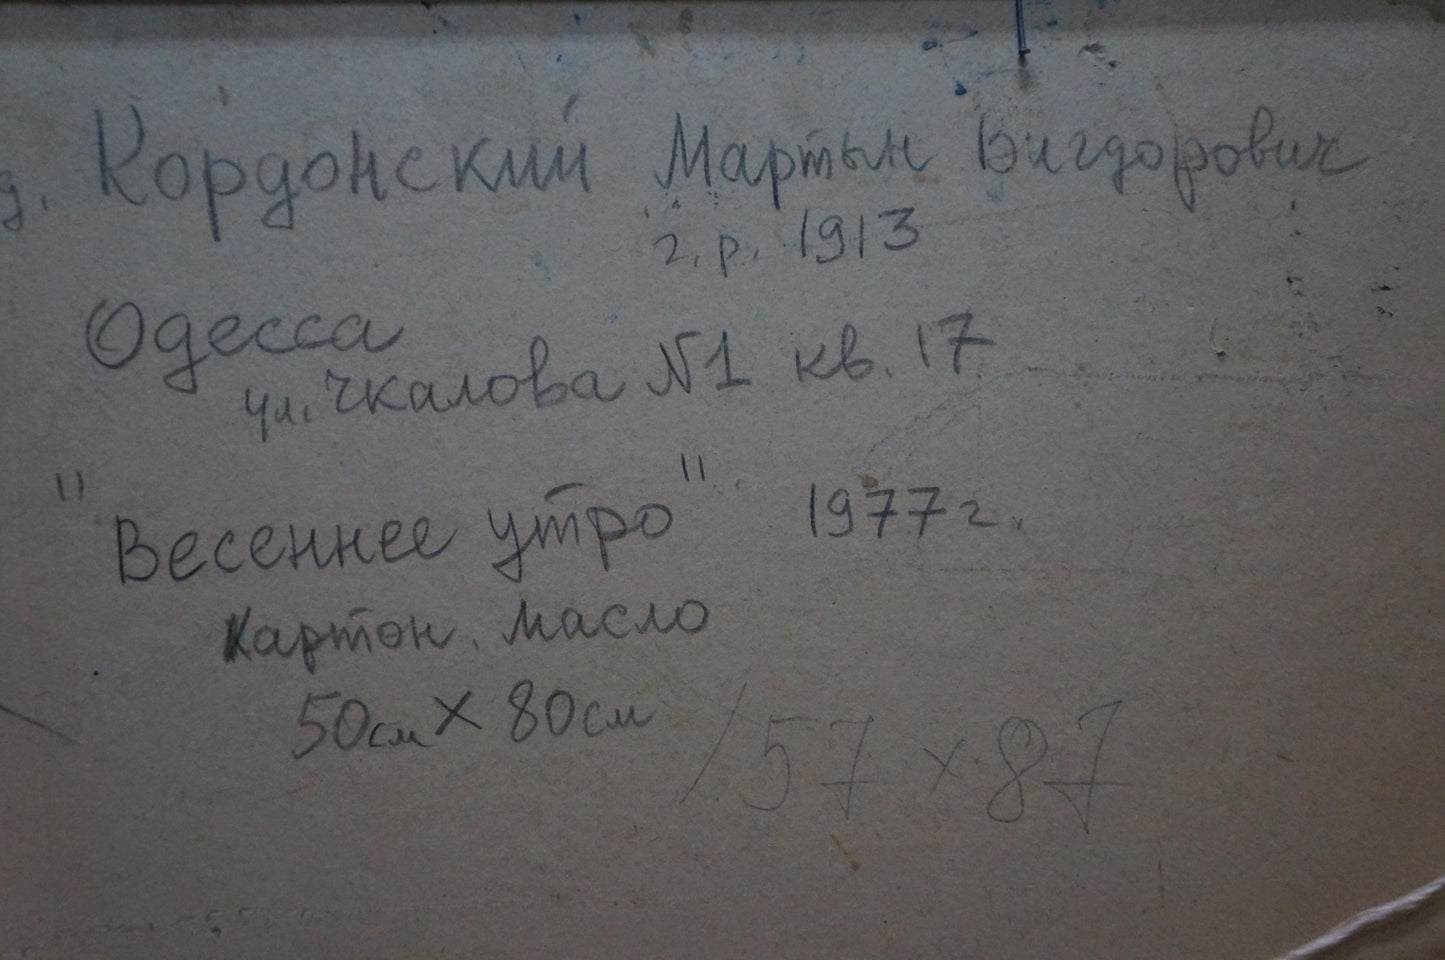 д. Кордонский Мартын Вигдорович
г.р. 1913
Одесса
ул. Чкалова №1 кв. 17
"Весеннее утро" 1977г.
Картон, масло
50см х 80см / 57 х 87